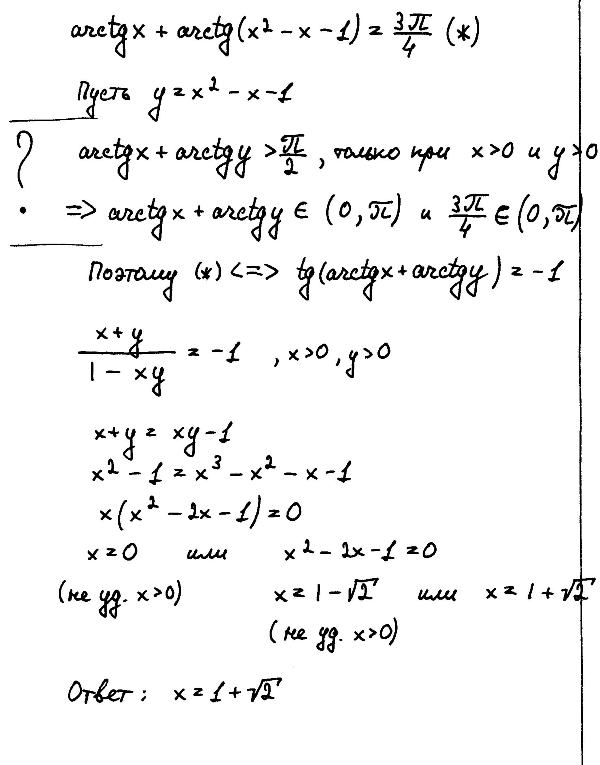 arctgx + arctg(x² - x - 1) = 3π/4 (*)
Пусть y = x² - x - 1
? arctgx + arctgy > π/2, только при x>0 и y>0
=> arctgx + arctgy ∈ (0, π) и 3π/4 ∈ (0, π)
Поэтому (*) <=> tg(arctgx + arctgy) = -1
(x+y)/(1 - xy) = -1 , x>0, y>0
x+y = xy-1
x² - 1 = x³ - x² - x - 1
x(x² - 2x - 1) = 0
x = 0 или x² - 2x - 1 = 0
(не уд. x>0) x = 1 - √2 или x = 1 + √2
(не уд. x>0)
Ответ: x = 1 + √2